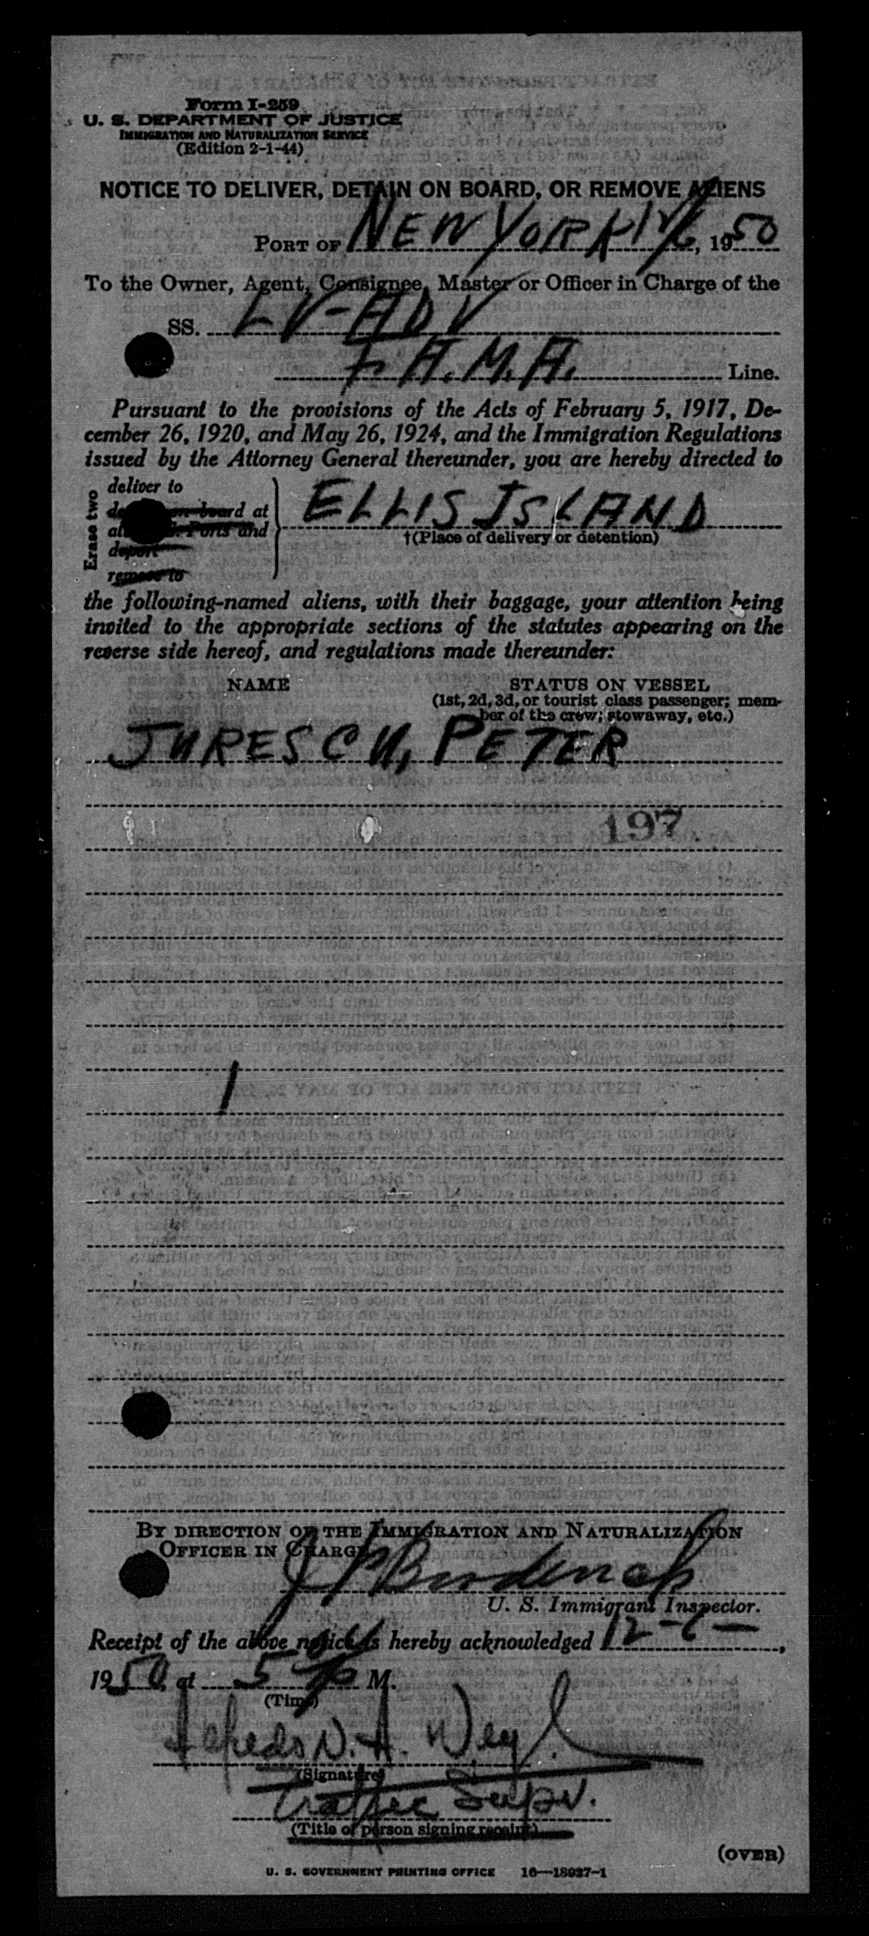 Form I-259
U. S. DEPARTMENT OF JUSTICE
IMMIGRATION AND NATURALIZATION SERVICE
(Edition 2-1-44)
NOTICE TO DELIVER, DETAIN ON BOARD, OR REMOVE ALIENS
PORT OF NEW YORK 12/6, 1950
To the Owner, Agent, Consignee, Master or Officer in Charge of the
SS. LV-ADV
F.A.M.A. Line.
Pursuant to the provisions of the Acts of February 5, 1917, De-
cember 26, 1920, and May 26, 1924, and the Immigration Regulations
issued by the Attorney General thereunder, you are hereby directed to
Erase two
deliver to
board at
Ports and
deport
remove to
ELLIS ISLAND
†(Place of delivery or detention)
the following-named aliens, with their baggage, your attention being
invited to the appropriate sections of the statutes appearing on the
reverse side hereof, and regulations made thereunder:
NAME STATUS ON VESSEL
(1st, 2d, 3d, or tourist class passenger; mem-
ber of the crew; stowaway, etc.)
JURESCU, PETER
197
1
BY DIRECTION OF THE IMMIGRATION AND NATURALIZATION
OFFICER IN CHARGE
U. S. Immigrant Inspector.
Receipt of the above notice is hereby acknowledged 12-6-,
1950, at 5 P M.
(Time)
Alfredo N. A.
(Signature)
Traffic Supv.
(Title of person signing receipt)
(OVER)
U. S. GOVERNMENT PRINTING OFFICE 16—18927-1